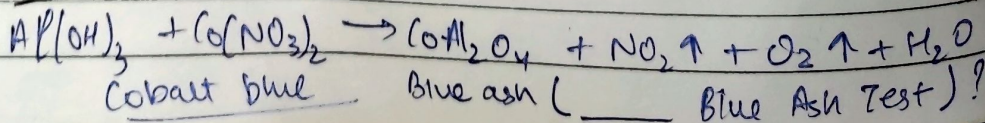 Al(OH)₃ + Co(NO₃)₂ → CoAl₂O₄ + NO₂↑ + O₂↑ + H₂O
Cobalt blue Blue ash ( ____ Blue Ash Test)?